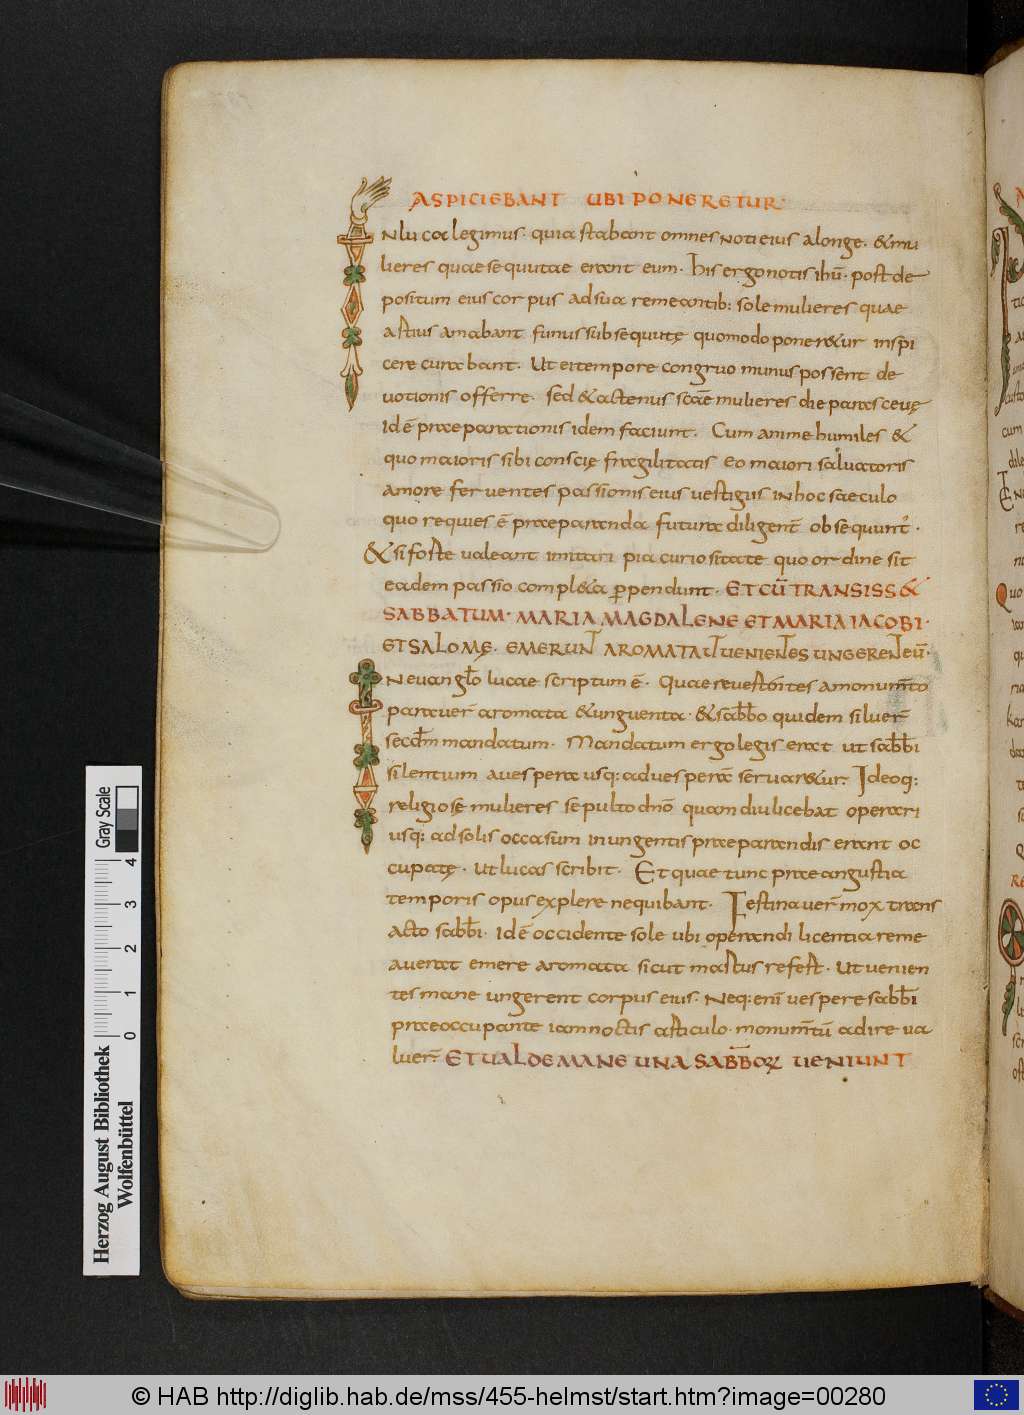 ASPICIEBANT UBI PONERETUR
INluca legimus. quia stabant omnes noti eius a longe. &mu
lieres quae sequutae erant eum. his ergo notis ihū. post de
positum eius corpus ad sua remeantib: sole mulieres quae
astius amabant funus subsequutę quomodo poner&ur inspi
cere curabant. Ut ei tempore congruo munus possent de
uotionis offerre. sed & actenus scāe mulieres die parasceuę
id ē praeparationis idem faciunt. Cum anime humiles &
quo maioris sibi conscię fragilitatis eo maiori saluatoris
amore feruentes passionis eius uestigiis in hoc saeculo
quo requies ē praeparanda futura diligent̄ obsequunt᷑.
& si foste ualeant imitari pia curiositate quo ordine sit
eadem passio compl&a ꝑpendunt. ET CŪ TRANSISS&
SABBATUM. MARIA MAGDALENE ET MARIA IACOBI.
ET SALOMĘ. EMERUNT AROMATA UT UENIENTES UNGERENT EŪ.
IN euanglo lucae scriptum ē. Quae reuestentes a monum̄to
parauer̄ aromata &unguenta. & sabb̄o quidem siluer̄
secdm̄ mandatum. Mandatum ergo legis erat ut sabb̄i
silentium a uespera usq: ad uesperā seruar&ur. Ideoq:
religiosę mulieres sepulto dnō quamdiu licebat operari
usq: ad solis occasum in ungentis praeparandis erant oc
cupatę. Ut lucas scribit. Et quae tunc prae angustia
temporis opus explere nequibant. Festinauer̄ mox trans
acto sabb̄i. Id ē occidente sole ubi operandi licentia reme
auerat emere aromata sicut mastus refest. Ut uenien
tes mane ungerent corpus eius. Neq: enī uespere sabb̄i
praeoccupante iam noctis articulo. monum̄tū adire ua
luer̄ ET UALDE MANE UNA SABBOꝜ UENIUNT
Gray Scale
4
3
2
1
0
Herzog August Bibliothek
Wolfenbüttel
© HAB http://diglib.hab.de/mss/455-helmst/start.htm?image=00280